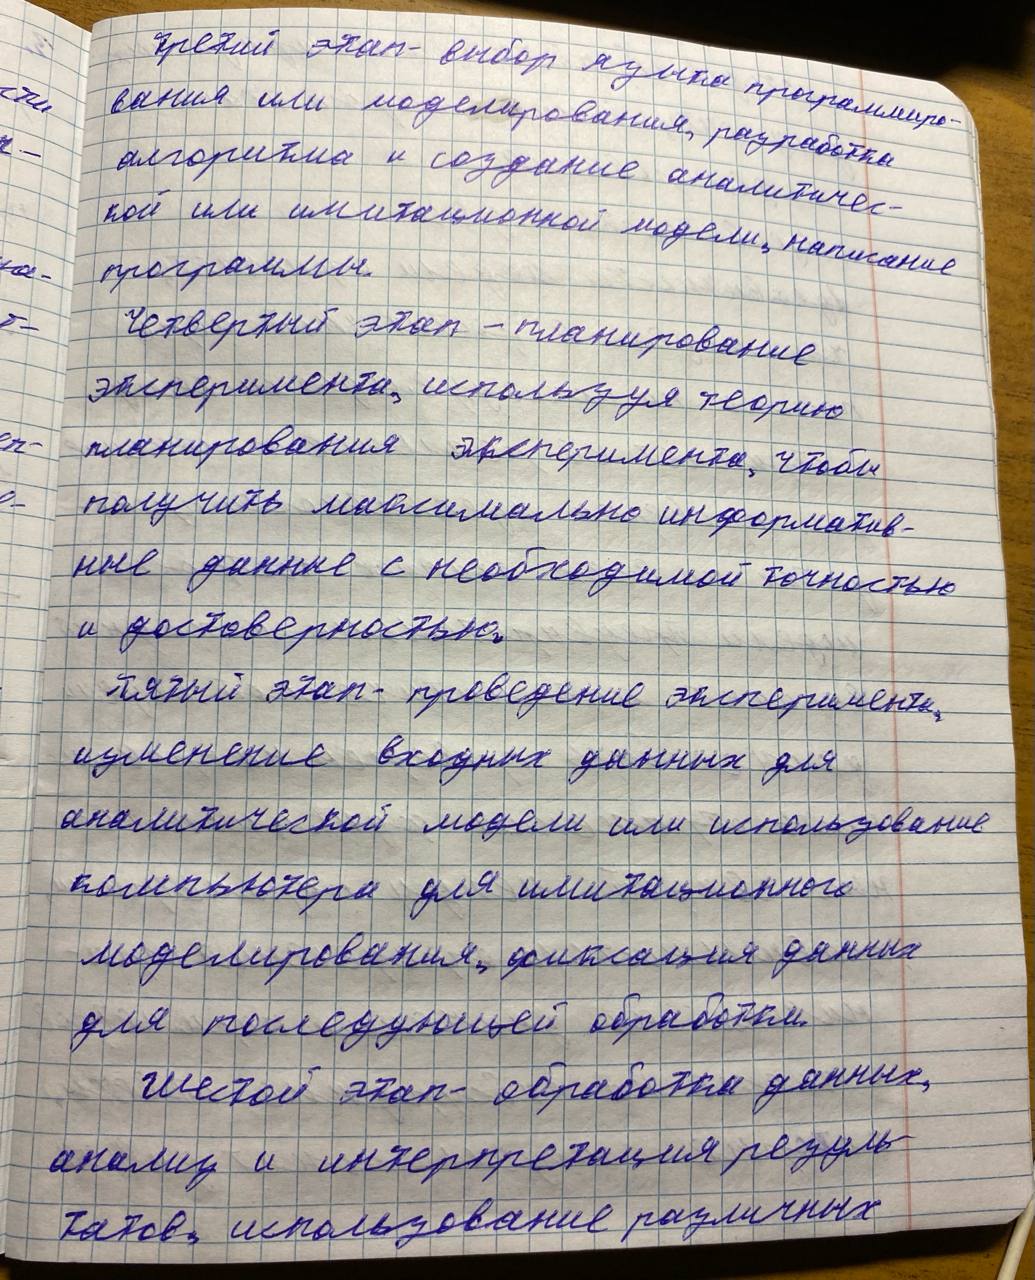 Третий этап - выбор языка программиро-
вания или моделирования, разработка
алгоритма и создание аналитичес-
кой или имитационной модели, написание
программы.
Четвертый этап - планирование
эксперимента, используя теорию
планирования эксперимента, чтобы
получить максимально информатив-
ные данные с необходимой точностью
и достоверностью.
Пятый этап - проведение эксперимента,
изменение входных данных для
аналитической модели или использование
компьютера для имитационного
моделирования, фиксация данных
для последующей обработки.
Шестой этап - обработка данных,
анализ и интерпретация резуль-
татов, использование различных